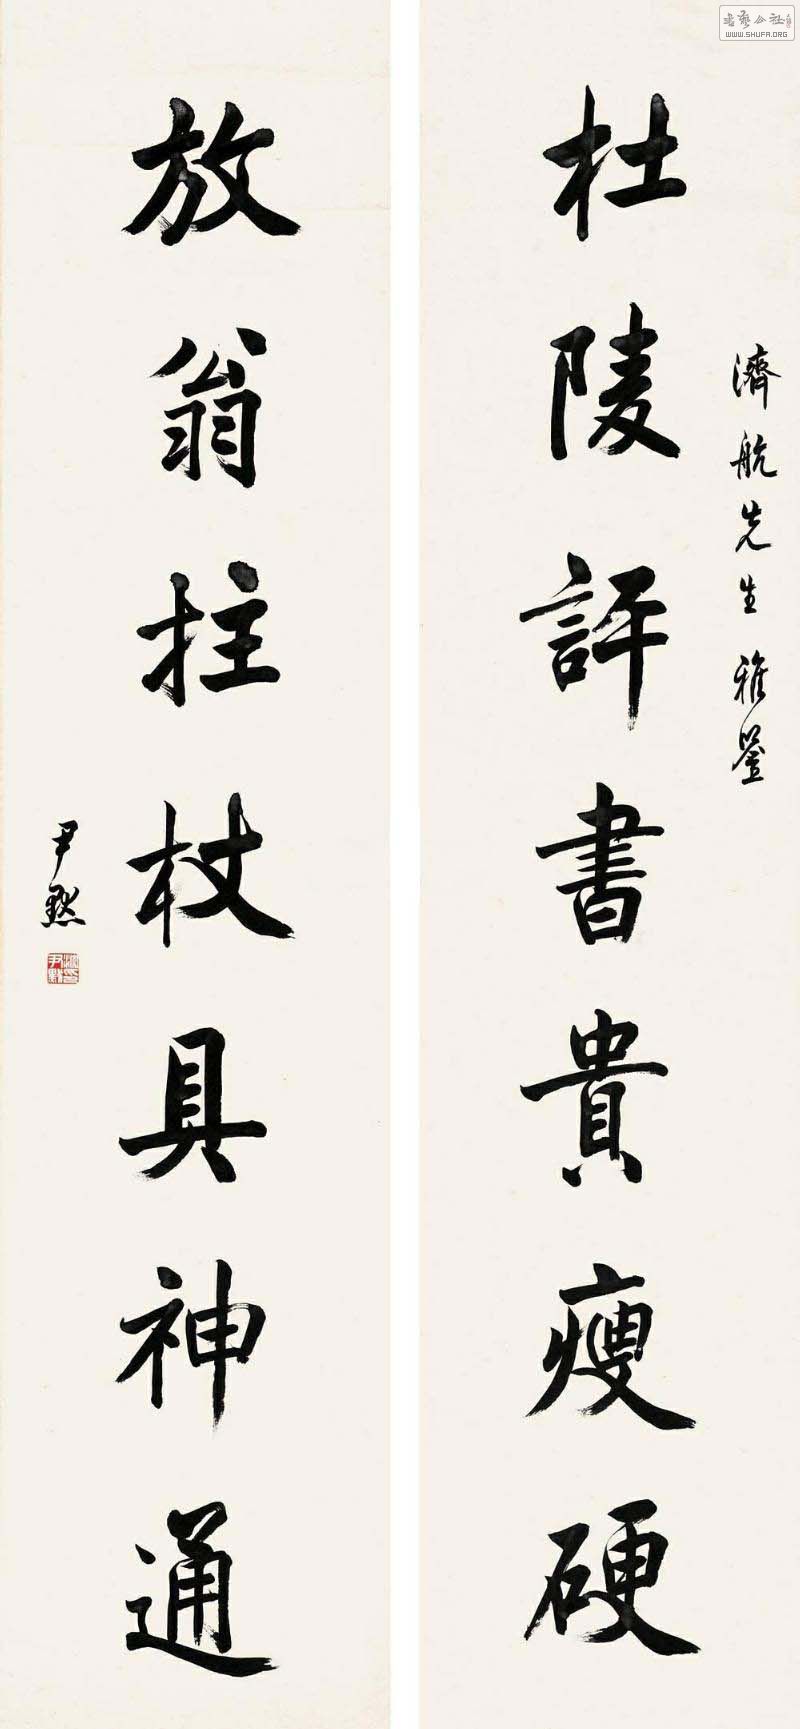 濟航先生雅鑒
杜陵評書貴瘦硬
放翁拄杖具神通
尹默
書藝公社
WWW.SHUFA.ORG